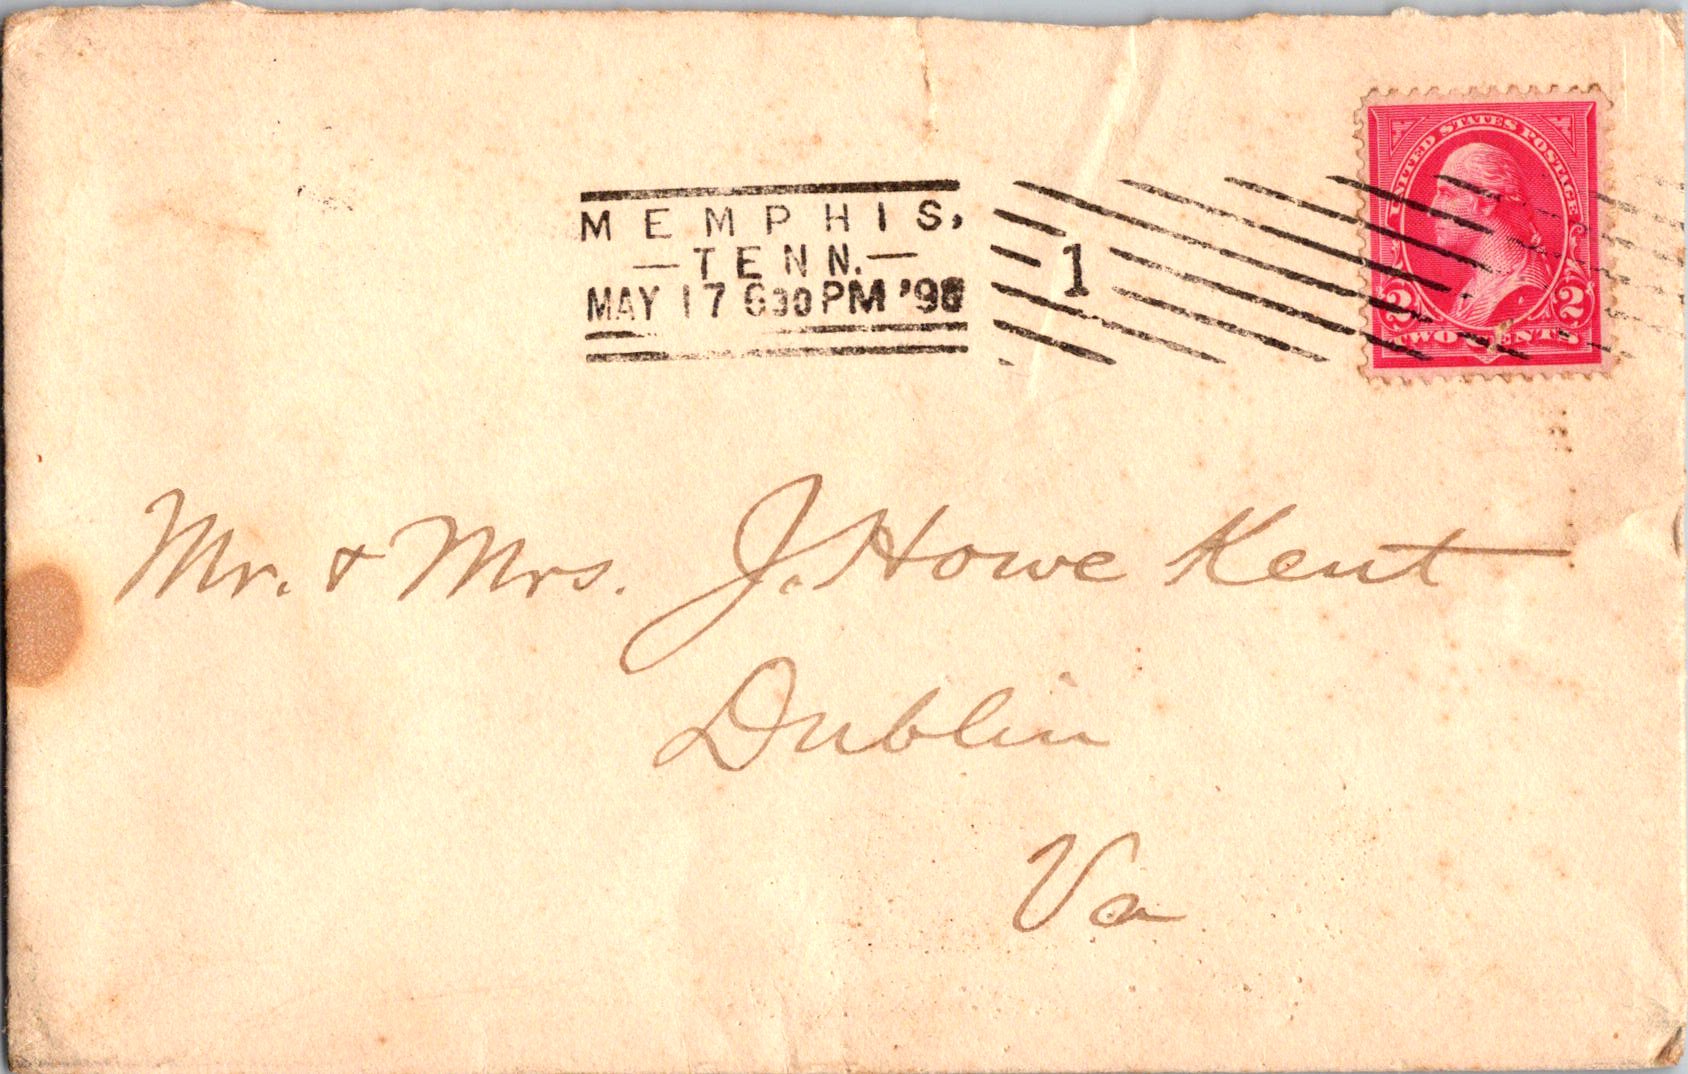 UNITED STATES POSTAGE
MEMPHIS,
—TENN.—
MAY 17 630PM
1
2 2
TWO CENTS
Mr. & Mrs. J. Howe Kent
Dublin
Va